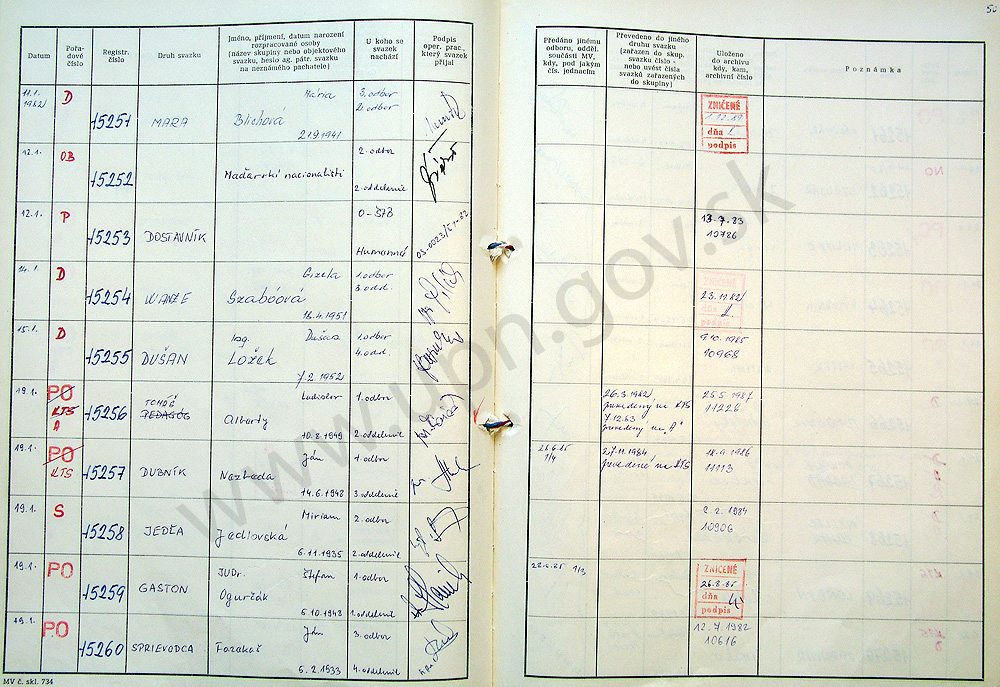 Datum
Pořadové číslo
Registr. číslo
Druh svazku
Jméno, příjmení, datum narození
rozpracované osoby
(název skupiny nebo objektového
svazku, heslo ag. pátr. svazku
na neznámého pachatele)
U koho se
svazek
nachází
Podpis
oper. prac.,
který svazek
přijal
Předáno jinému
odboru, odděl.
součásti MV,
kdy, pod jakým
čís. jednacím
Převedeno do jiného
druhu svazku
(zařazen do skup.
svazku číslo -
nebo uvést čísla
svazků zařazených
do skupiny)
Uloženo
do archivu
kdy, kam,
archivní číslo
Poznámka
11.1. 1982 D 15251 MARA Mária Blichová 21.9.1941 3. odbor 2. odbor
ZNIČENÉ
dňa
podpis
12.1. OB 15252 Maďarskí nacionalisti 2. odbor 2. oddelenie
12.1. P 15253 DOSTAVNÍK O-ŠTB Humenné 13.7.83 10786
14.1. D 15254 Gizela Szabóová 18.4.1951 1. odbor 3. odd. 23. 1982
15.1. D 15255 DUŠAN Ing. Ložek 7.2.1952 1. odbor 4. odd. 9.10.1985 10968
19.1. PO KTS A 15256 PEDAGÓG Ladislav 10.8.1949 1. odbor 2. oddelenie 26.3.1982 prevedený na KTS 7.12.83 prevedený na „A" 11226
19.1. PO KTS 15257 DUBNÍK Ján 14.6.1948 1. odbor 3. oddelenie 1/4 27.11.1984 prevedené na KTS 18.9.1986 11113
19.1. S 15258 JEDĽA Miriam Jedlovská 6.11.1935 2. odbor 2. oddelenie 2.2.1984 10906
19.1. PO 15259 GASTON JUDr. Štefan Ogurčák 5.10.1948 1. odbor 1. oddelenie 1/3
ZNIČENÉ
26.8.85
dňa
podpis
19.1. PO 15260 SPRIEVODCA Ján 5.2.1933 3. odbor 4. oddelenie 12.7.1982 10616
MV č. skl. 734
www.upn.gov.sk